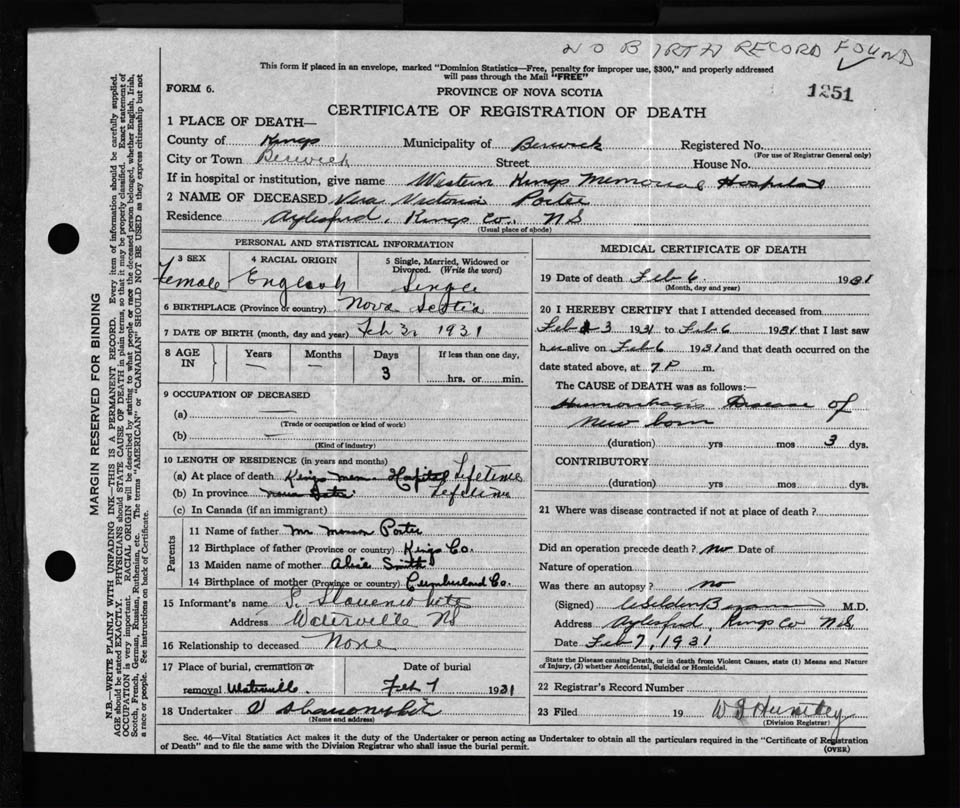 NO BIRTH RECORD FOUND
This form if placed in an envelope, marked "Dominion Statistics—Free, penalty for improper use, $300," and properly addressed
will pass through the Mail "FREE"
FORM 6.
PROVINCE OF NOVA SCOTIA
1251
CERTIFICATE OF REGISTRATION OF DEATH
1 PLACE OF DEATH—
County of Kings Municipality of Berwick Registered No.
(For use of Registrar General only)
City or Town Berwick Street House No.
If in hospital or institution, give name Western Kings Memorial Hospital
2 NAME OF DECEASED Vera Victoria Porter
Residence Aylesford, Kings Co. NS
(Usual place of abode)
PERSONAL AND STATISTICAL INFORMATION
3 SEX 4 RACIAL ORIGIN 5 Single, Married, Widowed or
Divorced. (Write the word)
Female English Single
6 BIRTHPLACE (Province or country) Nova Scotia
7 DATE OF BIRTH (month, day and year) Feb 3, 1931
8 AGE IN Years Months Days If less than one day,
— — 3 hrs. or min.
9 OCCUPATION OF DECEASED
(a) —
(Trade or occupation or kind of work)
(b) —
(Kind of industry)
10 LENGTH OF RESIDENCE (in years and months)
(a) At place of death Kings Mem. Hospital Lifetime
(b) In province Lifetime
(c) In Canada (if an immigrant)
Parents
11 Name of father Mr Porter
12 Birthplace of father (Province or country) Kings Co.
13 Maiden name of mother Alice Smith
14 Birthplace of mother (Province or country) Cumberland Co.
15 Informant's name
Address Waterville NS
16 Relationship to deceased None
17 Place of burial, cremation or Date of burial
removal Waterville. Feb 7 1931
18 Undertaker
(Name and address)
MEDICAL CERTIFICATE OF DEATH
19 Date of death Feb 6. 1931
(Month, day and year)
20 I HEREBY CERTIFY that I attended deceased from
Feb 3 1931 to Feb 6 1931 that I last saw
her alive on Feb 6 1931 and that death occurred on the
date stated above, at 7 P m.
The CAUSE of DEATH was as follows:—
Hemorrhagic Disease of
New born
(duration) yrs mos 3 dys.
CONTRIBUTORY
(duration) yrs mos dys.
21 Where was disease contracted if not at place of death?
Did an operation precede death? no Date of
Nature of operation
Was there an autopsy? no
(Signed) M.D.
Address Aylesford, Kings Co NS
Date Feb 7, 1931
State the Disease causing Death, or in death from Violent Causes, state (1) Means and Nature
of Injury, (2) whether Accidental, Suicidal or Homicidal.
22 Registrar's Record Number
23 Filed 19
(Division Registrar)
Sec. 46—Vital Statistics Act makes it the duty of the Undertaker or person acting as Undertaker to obtain all the particulars required in the "Certificate of Registration
of Death" and to file the same with the Division Registrar who shall issue the burial permit.
(OVER)
MARGIN RESERVED FOR BINDING
N.B.—WRITE PLAINLY WITH UNFADING INK—THIS IS A PERMANENT RECORD. Every item of information should be carefully supplied.
AGE should be stated EXACTLY. PHYSICIANS should STATE CAUSE OF DEATH in plain terms, so that it may be properly classified. Exact statement of
OCCUPATION is very important. RACIAL ORIGIN will be described by stating to what people or race the deceased person belonged, whether English, Irish,
Scotch, French, German, Russian, Ruthenian, etc. The terms "AMERICAN" or "CANADIAN" SHOULD NOT BE USED as they express citizenship but not
a race or people. See instructions on back of Certificate.